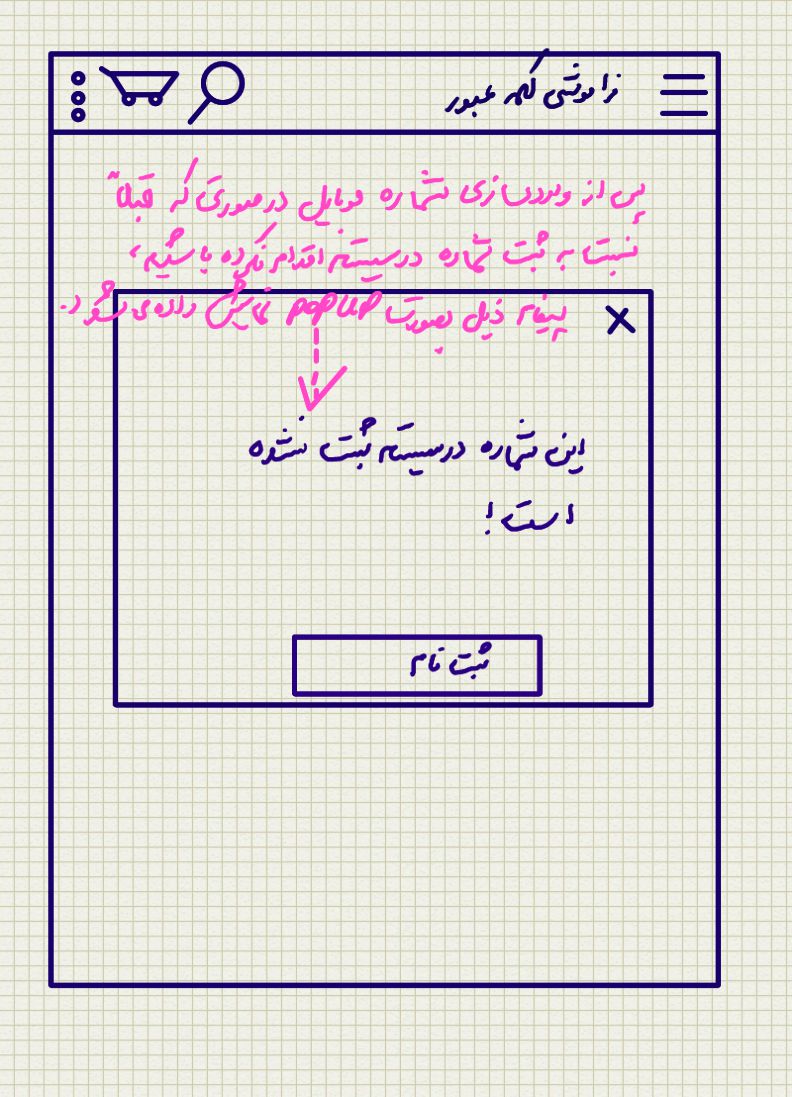 فراموشی کلمه عبور
پس از واردسازی شماره موبایل در صورتی که قبلاً
نسبت به ثبت شماره در سیستم اقدام نکرده باشیم،
پیغام ذیل بصورت popup نمایش داده می شود.
این شماره در سیستم ثبت نشده
است!
ثبت نام